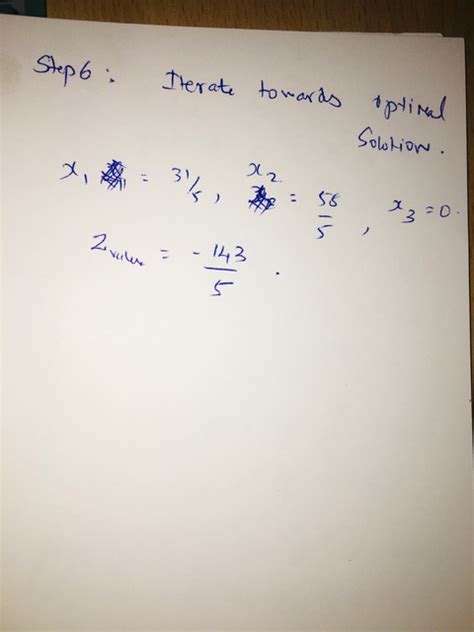 Step 6: Iterate towards optimal
Solution.
x₁ = 31/5, x₂ = 58/5, x₃ = 0.
Z value = -143/5.